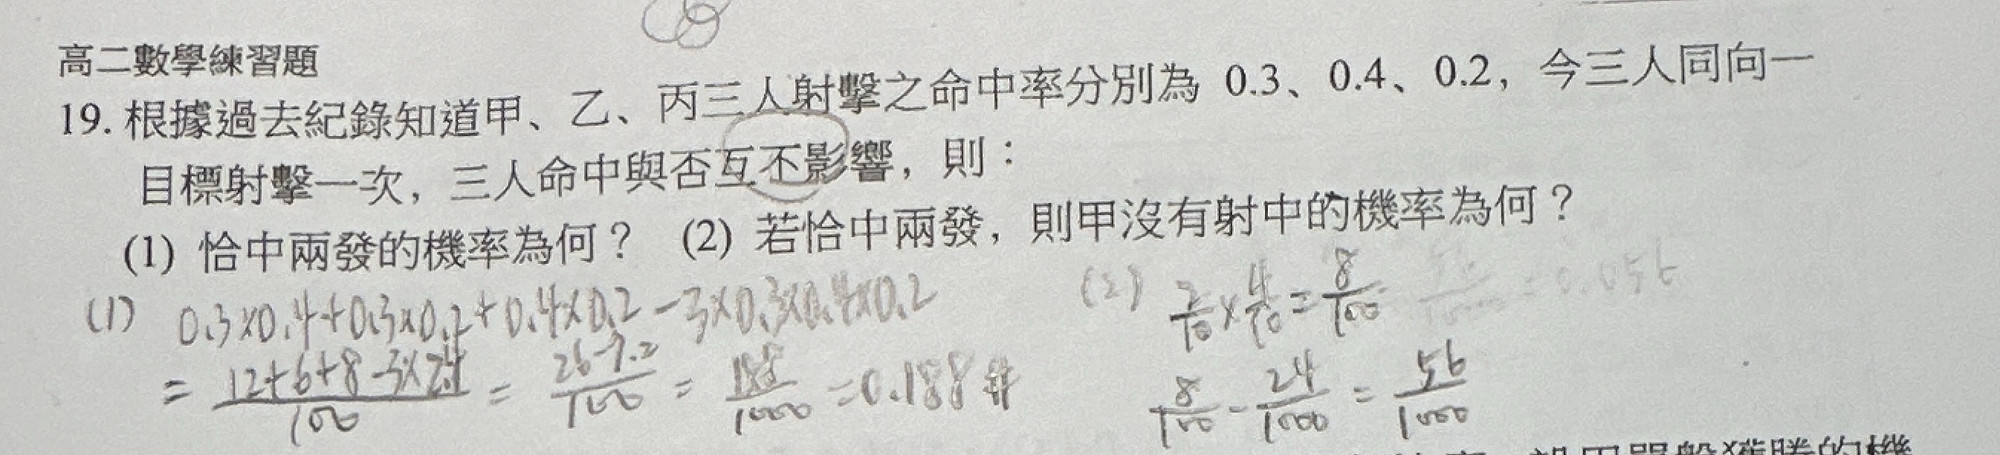 高二數學練習題
19. 根據過去紀錄知道甲、乙、丙三人射擊之命中率分別為 0.3、0.4、0.2，今三人同向一
目標射擊一次，三人命中與否互不影響，則：
(1) 恰中兩發的機率為何？ (2) 若恰中兩發，則甲沒有射中的機率為何？
(1) 0.3×0.4+0.3×0.2+0.4×0.2-3×0.3×0.4×0.2
= \frac{12+6+8-3×2.4}{100} = \frac{26-7.2}{100} = \frac{188}{1000} = 0.188 #
(2) \frac{2}{10}×\frac{4}{10}=\frac{8}{100} \frac{56}{1000} = 0.056
\frac{8}{100}-\frac{24}{1000}=\frac{56}{1000}